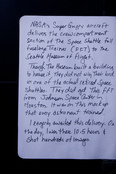 NASA's Super Guppy aircraft
delivers the crew compartment
section of the Space Shuttle Full
Fuselage Trainer (FFT) to the
Seattle Museum of Flight.
Though The Museum built a building
to house it, They did not win Their bid
on one of the actual retired Space
Shuttles. They did get This FFT
from Johnson Space Center in
Houston. It was in This mock up
that every astronaut trained.
I eagerly awaited this delivery. On
the day, I was there 10.5 hours &
shot hundreds of images.